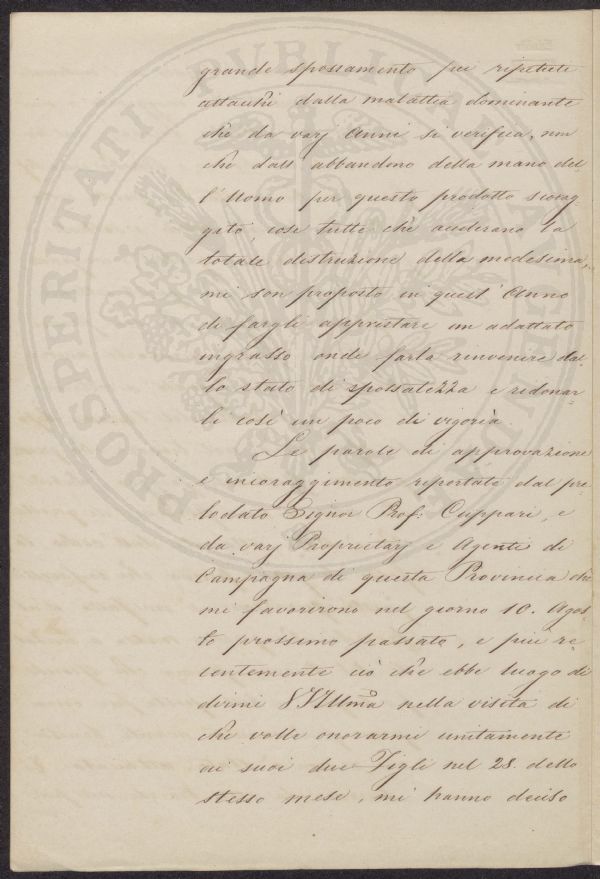 grande spossamento pei ripetuti
attacchi dalla malattia dominante
che da varj Anni si verifica, non
che dall' abbandono della mano del=
l'Uomo per questo prodotto scorag=
gito, cose tutte che accelerano la
totale distruzione della medesima,
mi son proposto in quest' Anno
di fargli apprestare un adattato
ingrasso onde farla rinvenire dal=
lo stato di spossatezza e ridonar=
le così un poco di vigoria.
Le parole di approvazione
e incoraggimento riportate dal pre
lodato Signor Prof: Cuppari, e
da varj Proprietarj e Agenti di
Campagna di questa Provincia che
mi favorirono nel giorno 10. Agos=
to prossimo passato, e più re
centemente ciò che ebbe luogo di
dirmi VS Illma nella visita di
che volle onorarmi unitamente
ai suoi due Figli nel 28. dello
stesso mese, mi hanno deciso
PROSPERITATI PVBLICAE